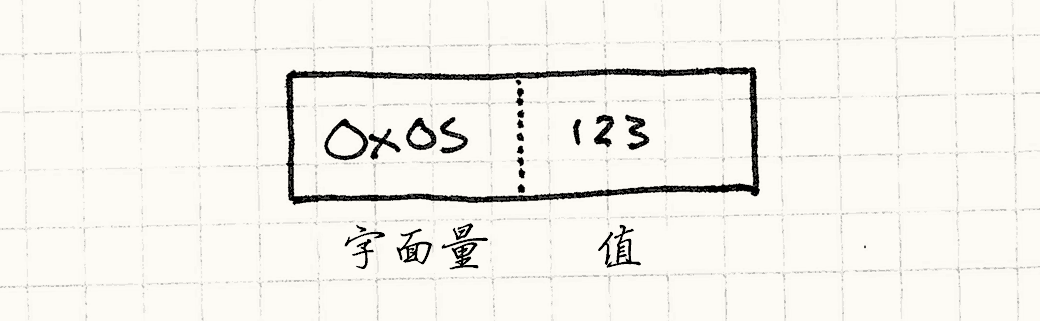 0x05 123
字面量 值